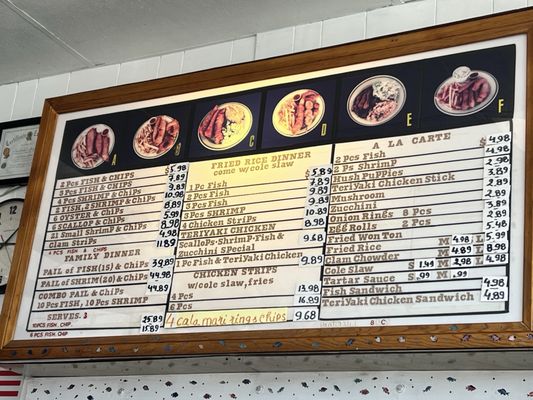 A
B
C
D
E
F
2 Pcs FISH & CHIPS $ 5.98
3 Pcs FISH & CHIPS 7.89
4 Pcs SHRIMP & CHIPS
FISH & SHRIMP & CHIPS
6 OYSTER & CHIPS
6 SCALLOP & CHIPS
21 Small SHRIMP & CHIPS
Clam Strips 11.89
FAMILY DINNER
PAIL of FISH(15) & CHIPS 39.98
PAIL of SHRIMP (20) & CHIPS 44.98
COMBO PAIL & CHIPS 44.98
10 Pcs FISH, 10 Pcs SHRIMP
SERVES: 3
10 PCS FISH, CHIP 25.89
6 PCS FISH, CHIP 15.89
FRIED RICE DINNER
come w/cole slaw
1 Pc Fish $ 5.89
2 Pcs Fish 7.89
3 Pcs Fish 9.89
3 Pcs SHRIMP
4 Chicken Strips
TERIYAKI CHICKEN
Scallops-Shrimp-Fish &
zucchini Special
1 Pc Fish & Teriyaki Chicken 9.89
CHICKEN STRIPS
w/cole slaw, fries
4 Pcs 13.98
6 Pcs 16.98
4 Calamari rings Chips 9.68
A LA CARTE
2 Pcs Fish $ 4.98
2 Pcs Shrimp 4.98
Hush Puppies 2.98
Teriyaki Chicken Stick
Mushroom
Zucchini
Onion Rings 8 Pcs
Egg Rolls 2 Pcs
Fried Won Ton
Fried Rice M 4.98 L 5.98
Clam Chowder M 4.89 L
Cole Slaw S 1.49 M 2.98 L 4.98
Tartar Sauce S .99 M .99
Fish Sandwich 4.98
Teriyaki Chicken Sandwich 4.89